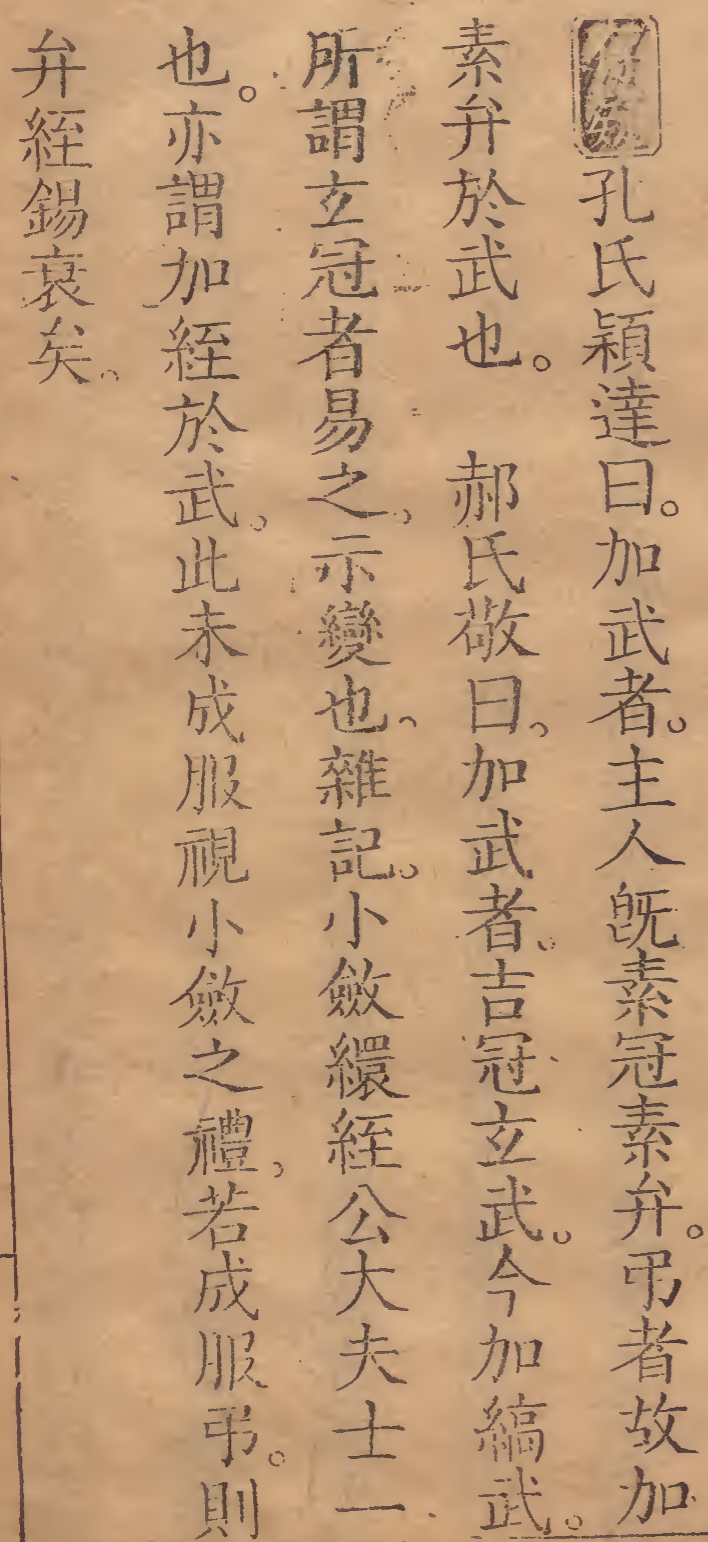 孔氏穎達曰。加武者。主人既素冠素弁。弔者故加
素弁於武也。　郝氏敬曰。加武者。吉冠玄武。今加縞武。
所謂玄冠者易之。示變也。雜記。小斂繯絰公大夫士一
也。亦謂加絰於武。此未成服視小斂之禮。若成服弔。則
弁絰錫衰矣。